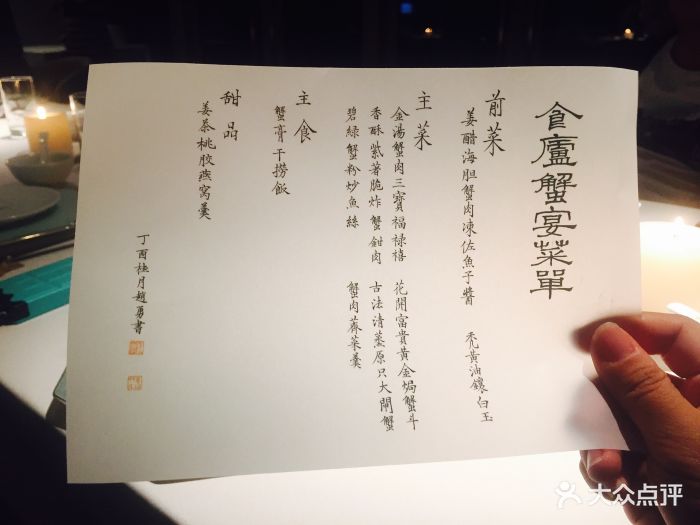 食廬蟹宴菜單
前菜
姜醋海胆蟹肉凍佐魚子醬 禿黃油釀白玉
主菜
金湯蟹肉三寶福禄禧 花開富貴黃金焗蟹斗
香酥紫薯脆炸蟹鉗肉 古法清蒸原只大閘蟹
碧綠蟹粉炒魚絲 蟹肉薺菜羹
主食
蟹膏干撈飯
甜品
姜茶桃胶燕窝羹
丁酉桂月趙勇書
大众点评